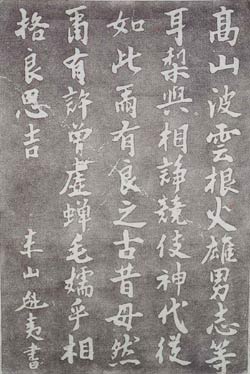 高山波雲根火雄男志等
耳梨與相諍競伎神代従
如此爾有良之古昔母然
爾有許曾虚蝉毛嬬乎相
挌良思吉 東山魁夷書